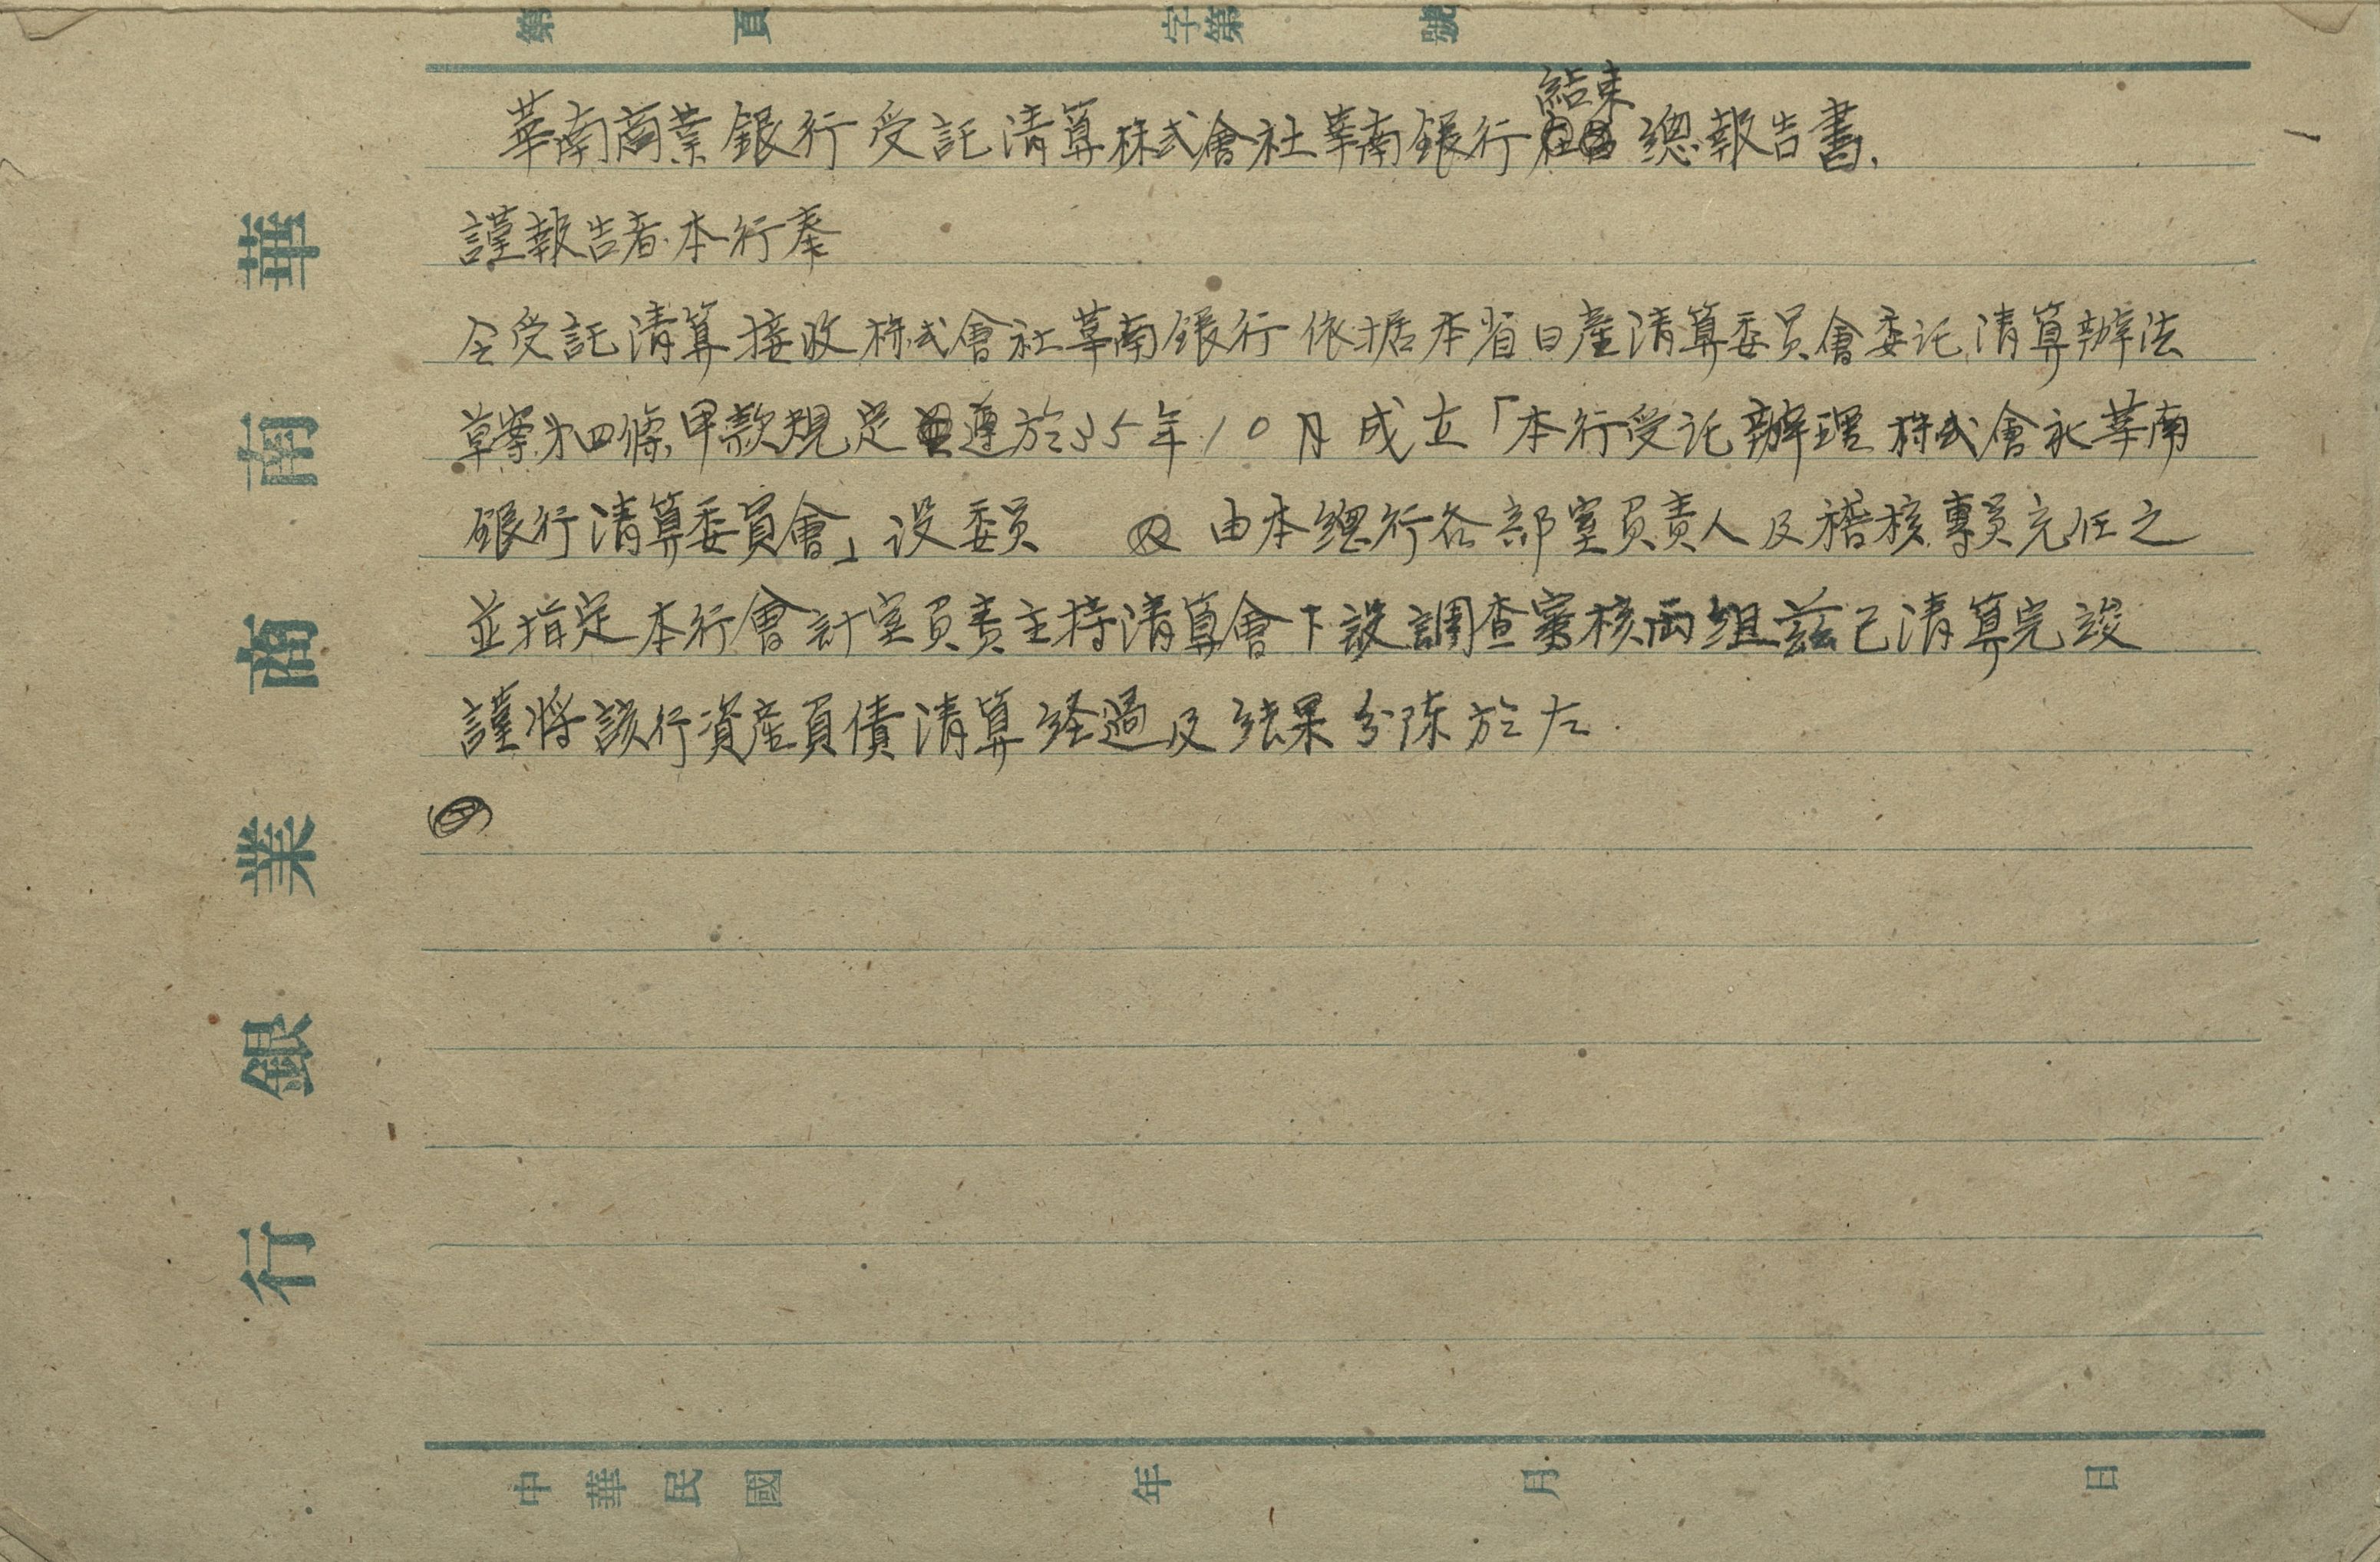 第 頁 字第 號
華南商業銀行受託清算株式會社華南銀行結束總報告書.
一
謹報告者本行奉
令受託清算接收株式會社華南銀行依据本省日產清算委員會委托清算辦法
草案第四條甲款規定遵於35年10月成立「本行受托辦理株式會社華南
銀行清算委員會」設委員 由本總行各部室負責人及稽核專員充任之
並指定本行會計室負責主持清算會下設調查審核両組兹已清算完竣
謹將該行資産負債清算経過及結果分陳於左.
華南商業銀行
中華民國 年 月 日